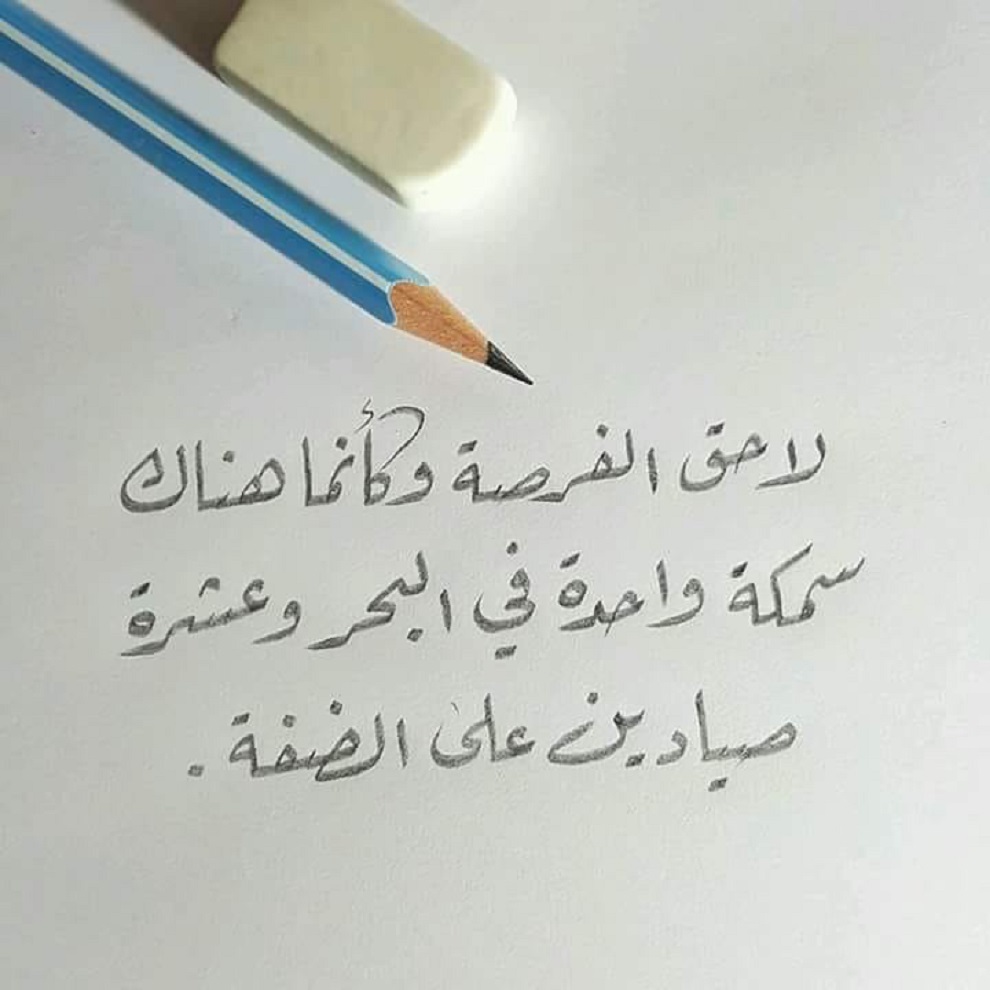 لاحق الفرصة وكأنما هناك
سمكة واحدة في البحر وعشرة
صيادين على الضفة .